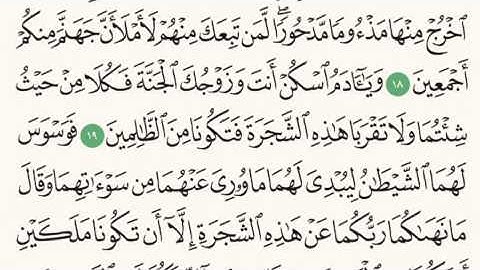 ٱخْرُجْ مِنْهَا مَذْءُومًا مَّدْحُورًا ۖ لَّمَن تَبِعَكَ مِنْهُمْ لَأَمْلَأَنَّ جَهَنَّمَ مِنكُمْ
أَجْمَعِينَ ١٨ وَيَٰٓـَٔادَمُ ٱسْكُنْ أَنتَ وَزَوْجُكَ ٱلْجَنَّةَ فَكُلَا مِنْ حَيْثُ
شِئْتُمَا وَلَا تَقْرَبَا هَٰذِهِ ٱلشَّجَرَةَ فَتَكُونَا مِنَ ٱلظَّٰلِمِينَ ١٩ فَوَسْوَسَ
لَهُمَا ٱلشَّيْطَٰنُ لِيُبْدِىَ لَهُمَا مَا وُۥرِىَ عَنْهُمَا مِن سَوْءَٰتِهِمَا وَقَالَ
مَا نَهَىٰكُمَا رَبُّكُمَا عَنْ هَٰذِهِ ٱلشَّجَرَةِ إِلَّآ أَن تَكُونَا مَلَكَيْنِ